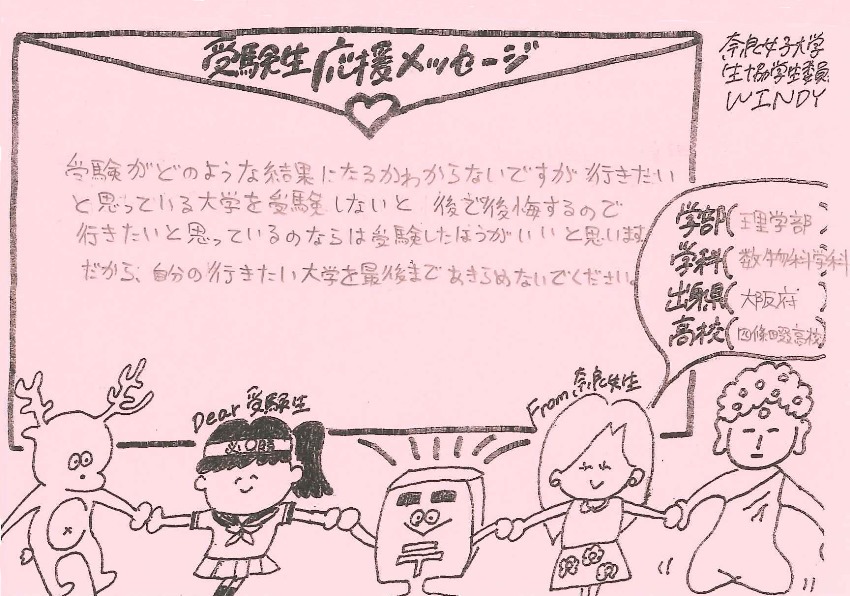 受験生応援メッセージ
奈良女子大学
生協学生委員
WINDY
受験がどのような結果になるかわからないですが 行きたい
と思っている大学を受験しないと 後で後悔するので
行きたいと思っているのならば受験したほうがいいと思います
だから、自分の行きたい大学を最後まであきらめないでください。
学部(理学部)
学科(数物科学科
出身県(大阪府)
高校(四條畷高校)
Dear 受験生
必勝
From 奈良先生
〒